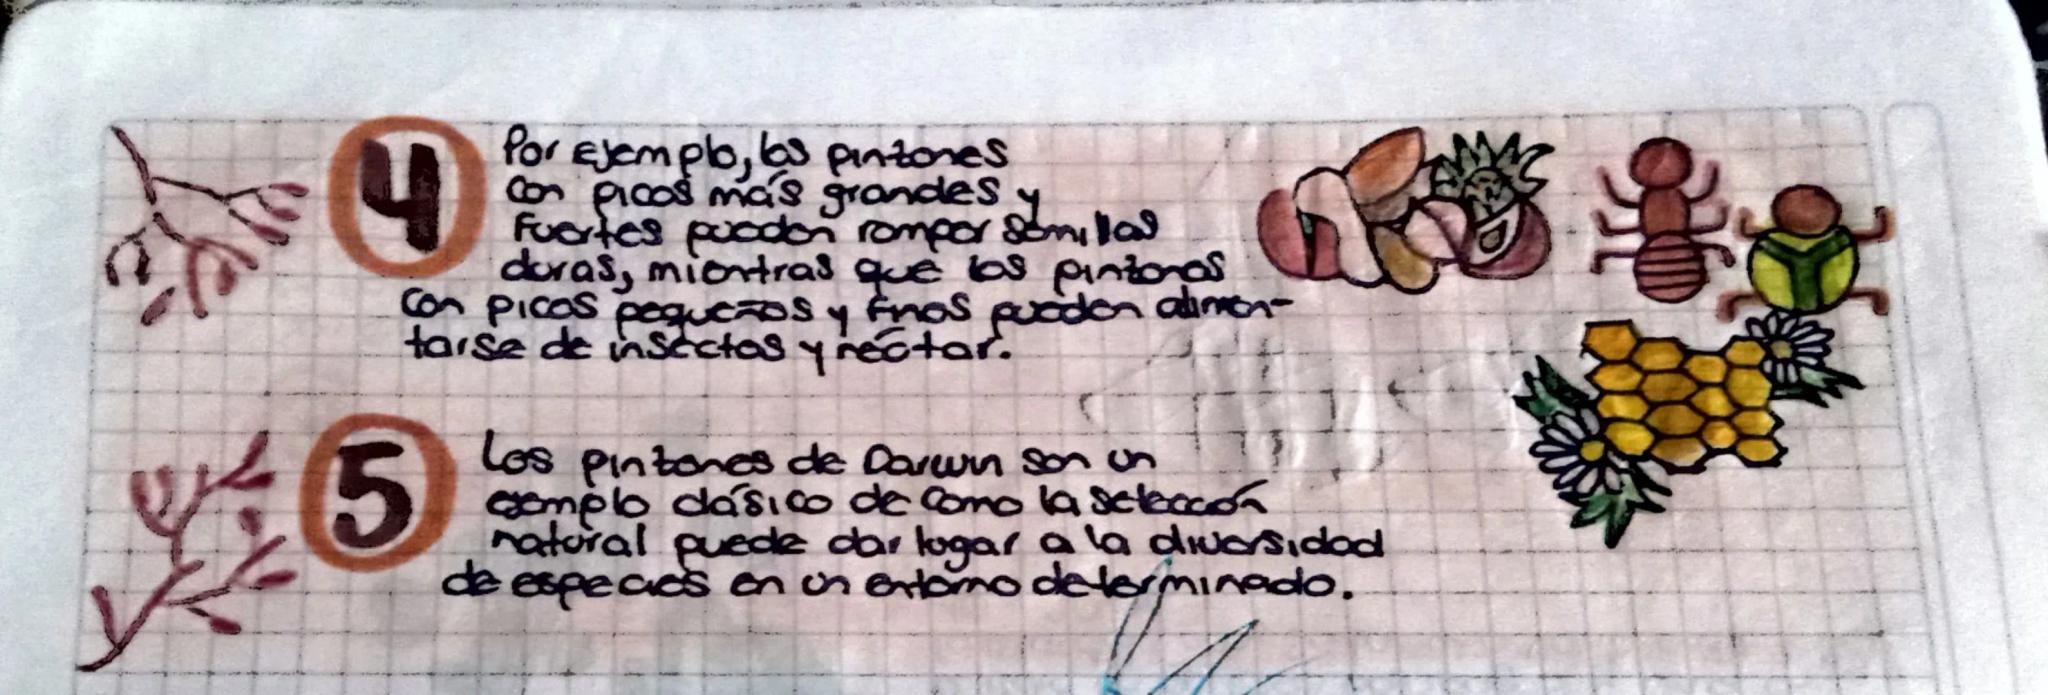 4
Por Ejemplo, los pintones
con picos más grandes y
Fuertes pueden romper semillas
duras, mientras que los pintones
con picos pequeños y finos pueden alimen-
tarse de insectos y néctar.
5
Los pintones de Darwin son un
ejemplo clásico de como la selección
natural puede dar lugar a la diversidad
de especies en un entorno determinado.